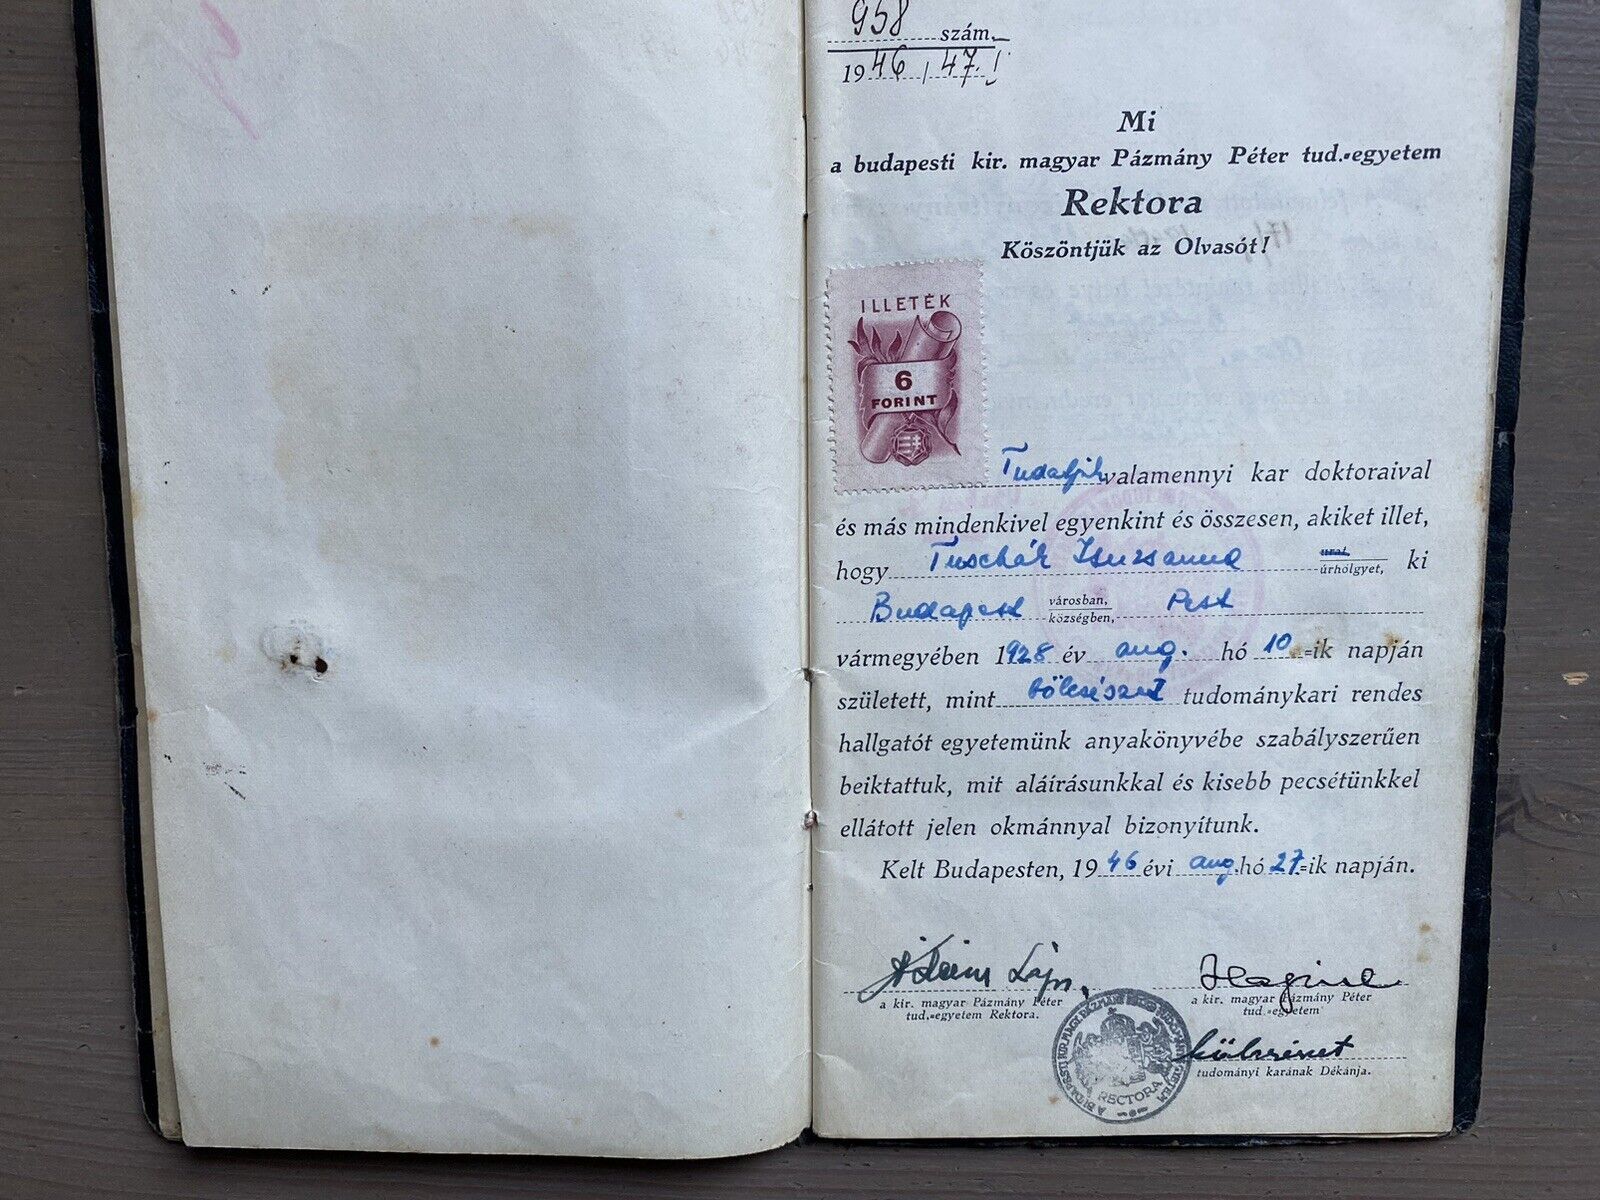 958 szám.
1946/47. I
Mi
a budapesti kir. magyar Pázmány Péter tud.-egyetem
Rektora
Köszöntjük az Olvasót!
ILLETÉK
6
FORINT
Tudatjuk valamennyi kar doktoraival
és más mindenkivel egyenkint és összesen, akiket illet,
hogy Tuschák Zsuzsanna urat, úrhölgyet, ki
Budapest városban, községben, Pest
vármegyében 1928 év aug. hó 10=ik napján
született, mint bölcsészet tudománykari rendes
hallgatót egyetemünk anyakönyvébe szabályszerűen
beiktattuk, mit aláírásunkkal és kisebb pecsétünkkel
ellátott jelen okmánnyal bizonyítunk.
Kelt Budapesten, 1946 évi aug. hó 27=ik napján.
a kir. magyar Pázmány Péter
tud.-egyetem Rektora.
a kir. magyar Pázmány Péter
tud.-egyetem
bölcsészet
tudományi karának Dékánja.
RECTORA